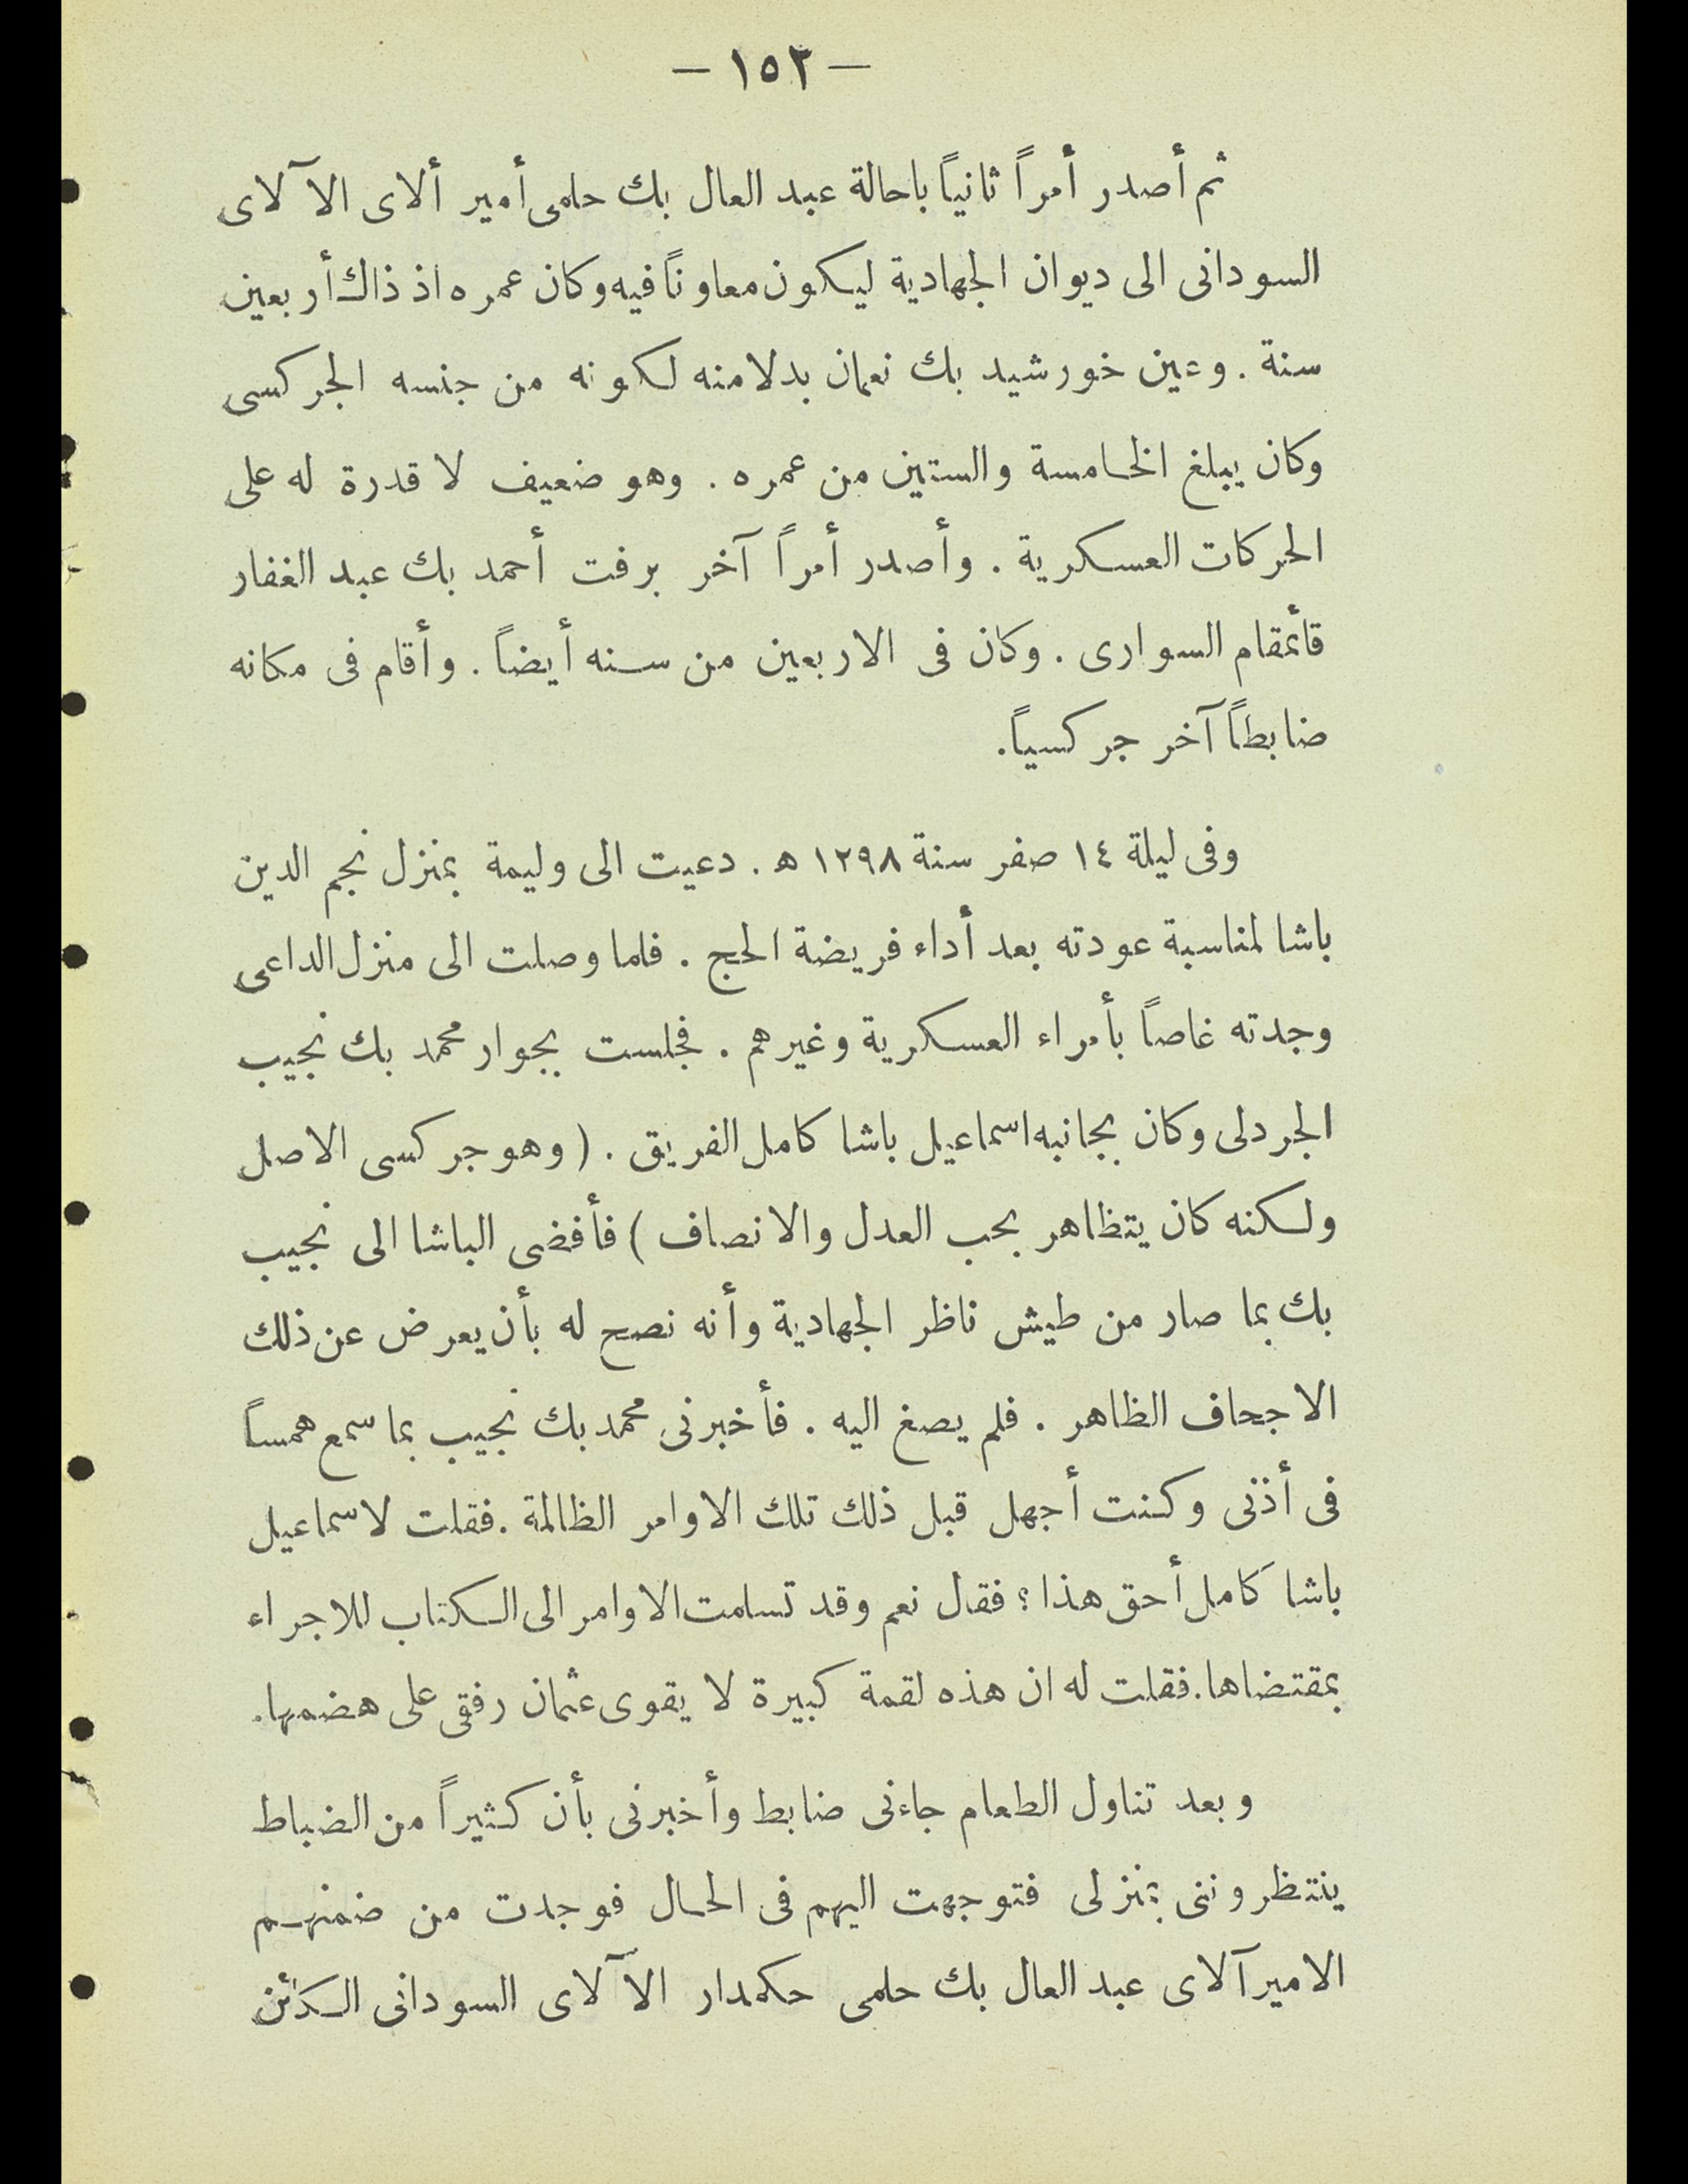 — ١٥٣ —
ثم أصدر أمراً ثانياً باحالة عبد العال بك حلمى أمير ألاى الآلاى
السودانى الى ديوان الجهادية ليكون معاوناً فيه وكان عمره اذ ذاك أربعين
سنة . وعين خورشيد بك نعمان بدلا منه لكونه من جنسه الجركسى
وكان يبلغ الخامسة والستين من عمره . وهو ضعيف لا قدرة له على
الحركات العسكرية . وأصدر أمراً آخر برفت أحمد بك عبد الغفار
قائمقام السوارى . وكان فى الاربعين من سنه أيضاً . وأقام فى مكانه
ضابطاً آخر جركسياً.
وفى ليلة ١٤ صفر سنة ١٢٩٨ ه . دعيت الى وليمة بمنزل نجم الدين
باشا لمناسبة عودته بعد أداء فريضة الحج . فلما وصلت الى منزل الداعى
وجدته غاصاً بأمراء العسكرية وغيرهم . فجلست بجوار محمد بك نجيب
الجردلى وكان بجانبه اسماعيل باشا كامل الفريق . ( وهو جركسى الاصل
ولكنه كان يتظاهر بحب العدل والانصاف ) فأفضى الباشا الى نجيب
بك بما صار من طيش ناظر الجهادية وأنه نصح له بأن يعرض عن ذلك
الاجحاف الظاهر . فلم يصغ اليه . فأخبرنى محمد بك نجيب بما سمع همساً
فى أذنى وكنت أجهل قبل ذلك تلك الاوامر الظالمة . فقلت لاسماعيل
باشا كامل أحق هذا ؟ فقال نعم وقد تسلمت الاوامر الى الكتاب للاجراء
بمقتضاها. فقلت له ان هذه لقمة كبيرة لا يقوى عثمان رفقى على هضمها.
وبعد تناول الطعام جاءنى ضابط وأخبرنى بأن كثيراً من الضباط
ينتظروننى بمنزلى فتوجهت اليهم فى الحال فوجدت من ضمنهم
الاميرآلاى عبد العال بك حلمى حكمدار الآلاى السودانى الكائن